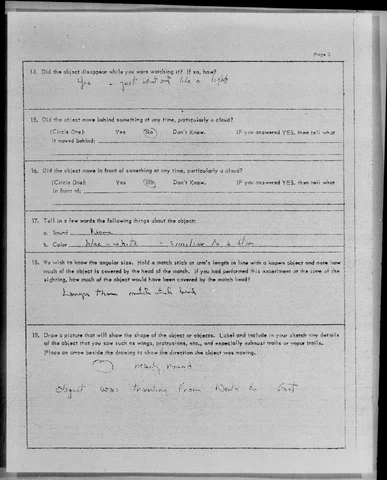 Page 3
14. Did the object disappear while you were watching it? If so, how?
Yes - just went out like a light
15. Did the object move behind something at any time, particularly a cloud?
(Circle One): Yes No Don't Know. IF you answered YES, then tell what
it moved behind:
16. Did the object move in front of something at any time, particularly a cloud?
(Circle One): Yes No Don't Know. IF you answered YES, then tell what
in front of:
17. Tell in a few words the following things about the object:
a. Sound None
b. Color blue-white - similar to a
18. We wish to know the angular size. Hold a match stick at arm's length in line with a known object and note how
much of the object is covered by the head of the match. If you had performed this experiment at the time of the
sighting, how much of the object would have been covered by the match head?
Larger than match stick head
19. Draw a picture that will show the shape of the object or objects. Label and include in your sketch any details
of the object that you saw such as wings, protrusions, etc., and especially exhaust trails or vapor trails.
Place an arrow beside the drawing to show the direction the object was moving.
nearly round
Object was traveling from North to East